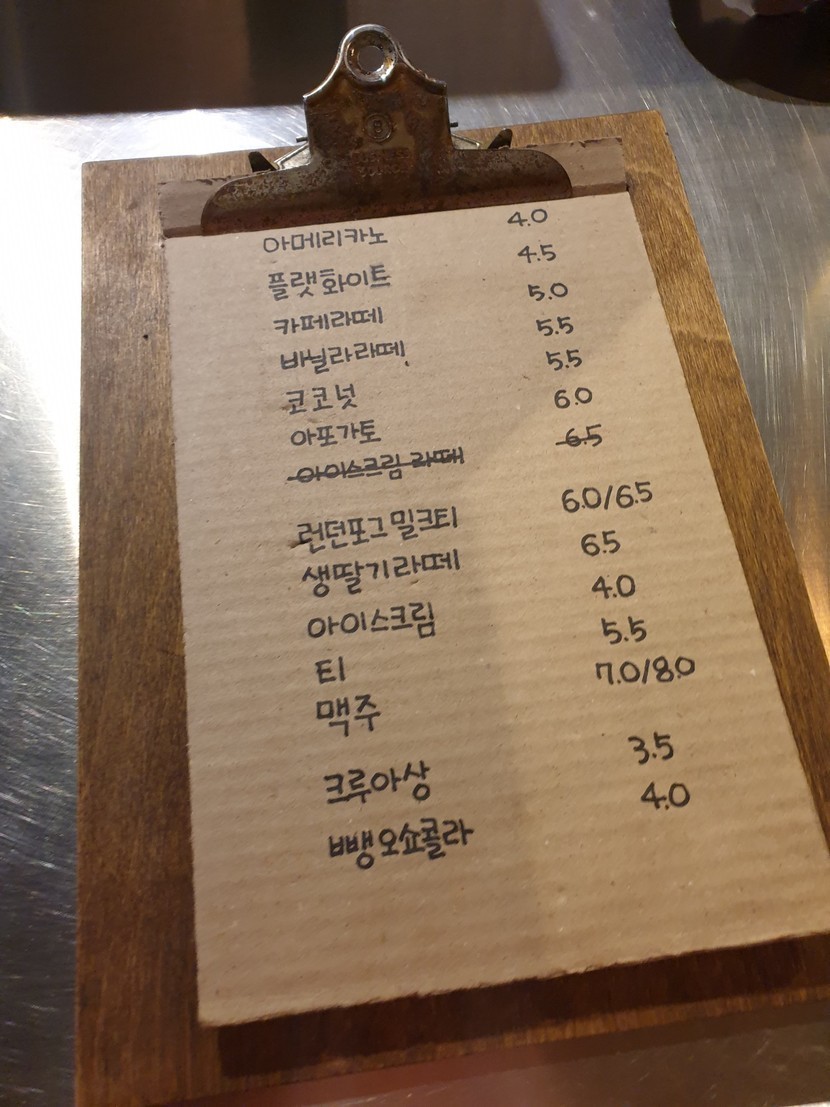 아메리카노 4.0
플랫화이트 4.5
카페라떼 5.0
바닐라라떼 5.5
코코넛 5.5
아포가토 6.0
아이스크림 라떼 6.5
런던포그 밀크티 6.0/6.5
생딸기라떼 6.5
아이스크림 4.0
티 5.5
맥주 7.0/8.0
크루아상 3.5
뺑오쇼콜라 4.0